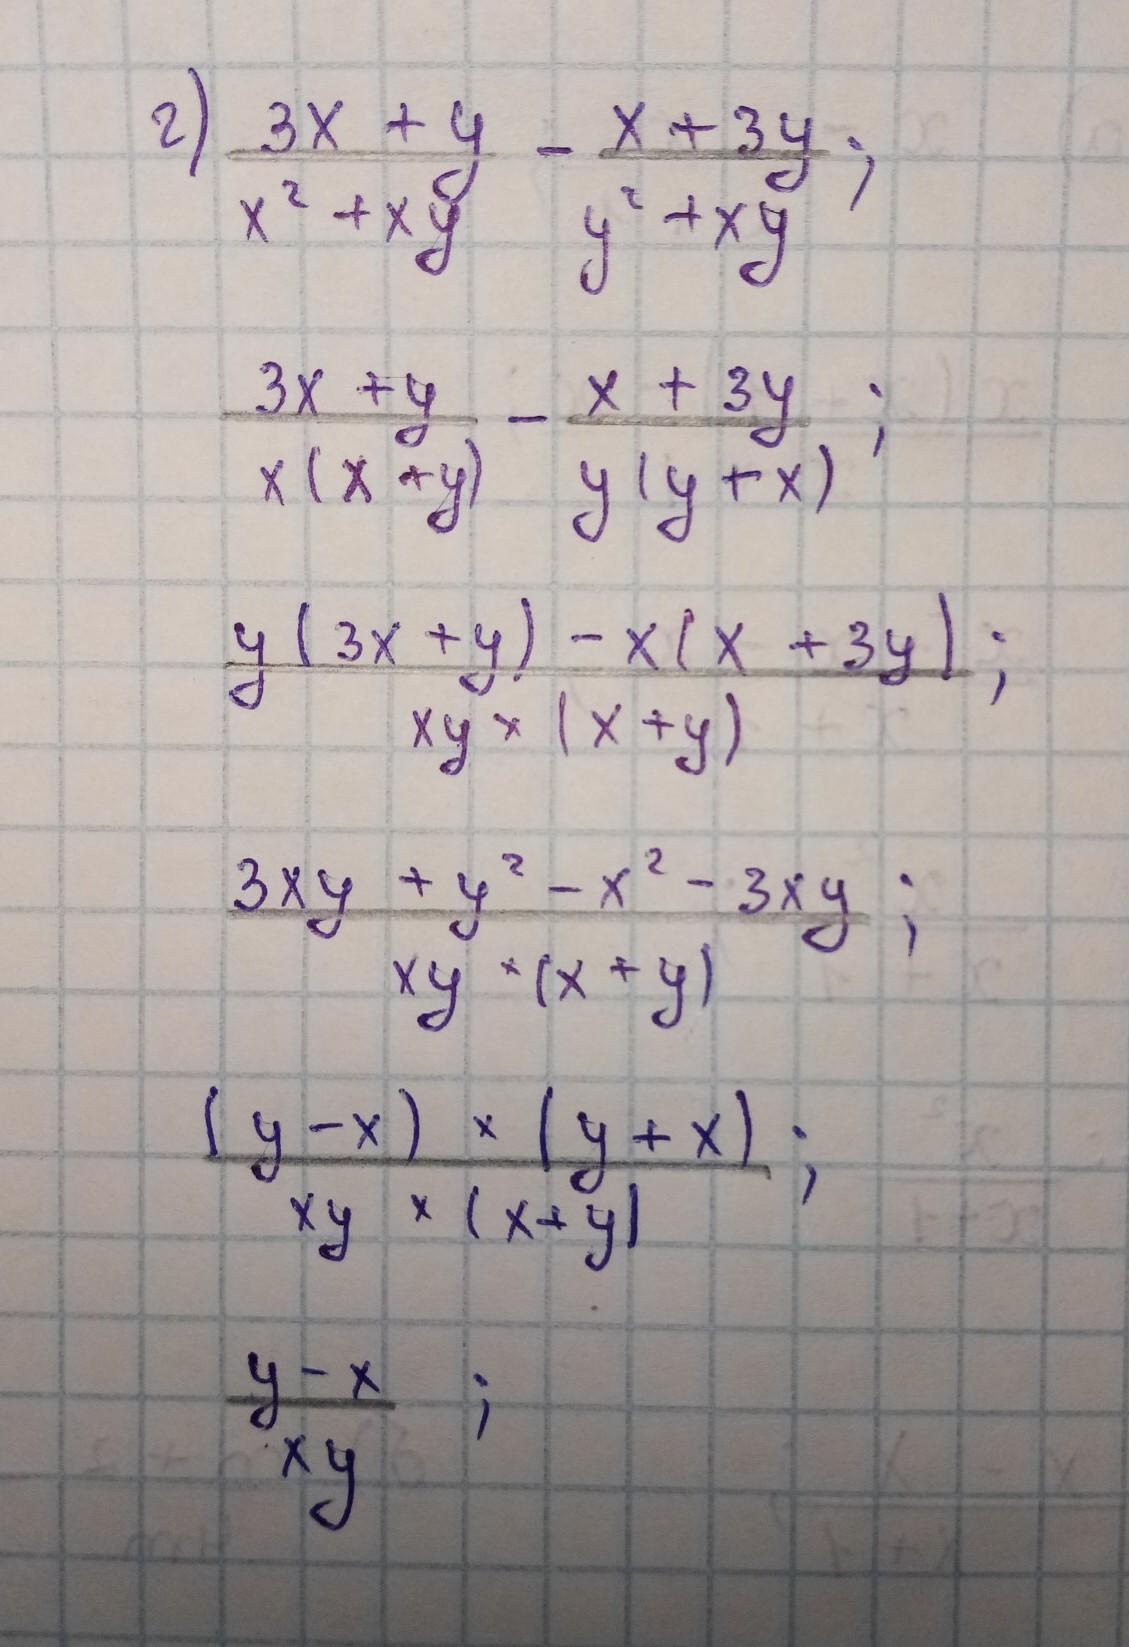 г) 3x + y / x² + xy - x + 3y / y² + xy ;
3x + y / x(x + y) - x + 3y / y(y + x) ;
y(3x + y) - x(x + 3y) / xy × (x + y) ;
3xy + y² - x² - 3xy / xy × (x + y) ;
(y - x) × (y + x) / xy × (x + y) ;
y - x / xy ;